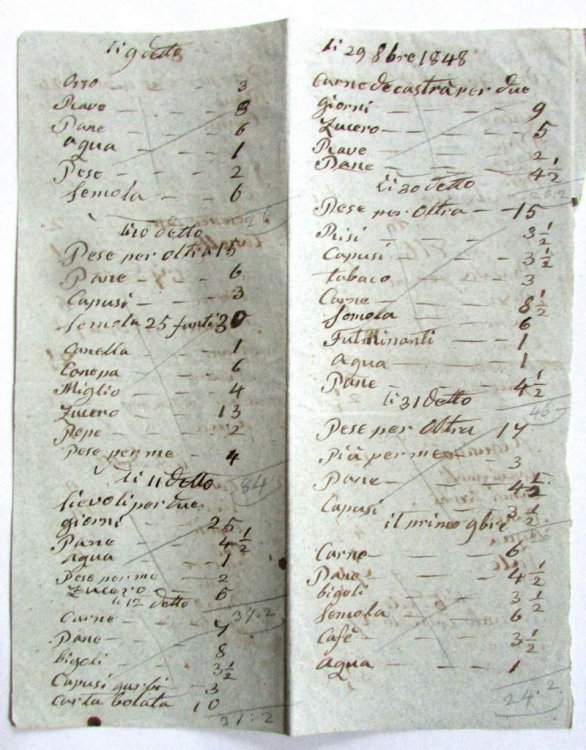 li 9 detto
Orso - - - 3
Piave - - - 8
Pane - - - 6
agua - - - 1
Pese - - - 2
Semola - - 6
26
li 10 detto
Pese per oltra 15
Pane - - - 6
Capusi - - 3
Semola 25 funti 30
Canella - - 1
Canepa - - 6
Miglio - - 4
Zucero - - 13
Pepe - - - 2
Pese per me - 4
84
li 11 detto
Sievoli per due
giorni - - - 25
Pane - - - 4 1/2
agua - - - 1
Pese per me - 2
Zucero - - 5
37.2
li 12 detto
Carne - - - 7
Pane - - - 8
bigoli - - - 3 1/2
Capusi garbi - 3
Carta bolata 10
31.2
li 29 8bre 1848
Carne de castrà per due
giorni - - - 9
Zucero - - - 5
Piave - - - 2
Pane - - - 4 1/2
20.2
li 30 detto
Pese per Oltra - 15
Risi - - - 3 1/2
Capusi - - - 3 1/2
tabaco - - - 3
Carne - - - 8 1/2
Semola - - - 6
Fulminanti - 1
agua - - - 1
Pane - - - 4 1/2
46
li 31 detto
Pese per Oltra 17
Più per me - 3
Pane - - - 4 1/2
Capusi - - 3 1/2
il primo 9bre
Carne - - - 6
Pane - - - 4 1/2
bigoli - - - 3 1/2
Semola - - 6
Cafè - - - 3 1/2
agua - - - 1
24.2